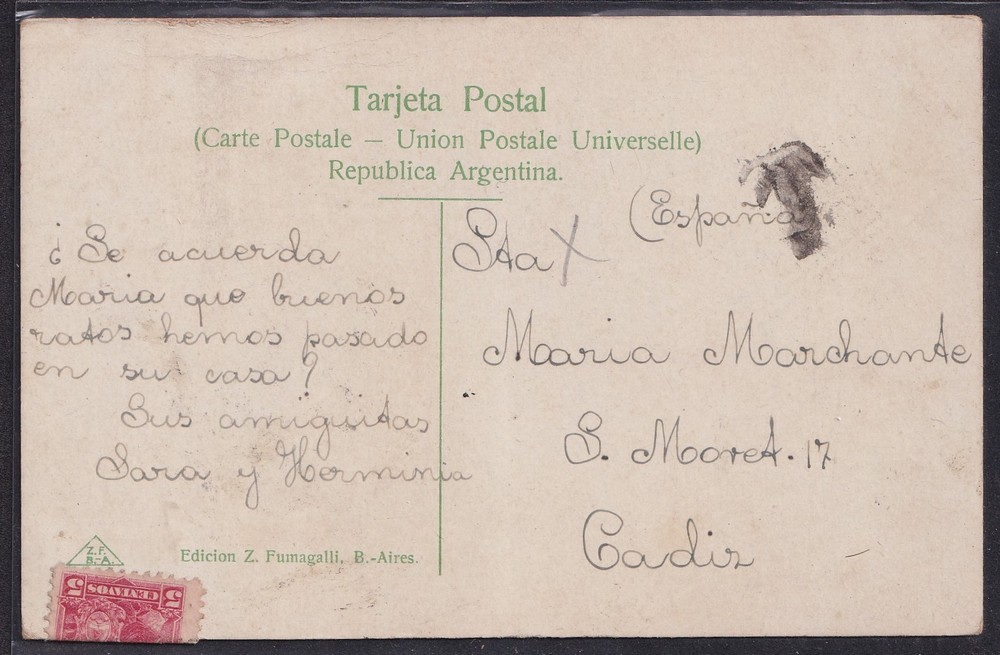 Tarjeta Postal
(Carte Postale — Union Postale Universelle)
Republica Argentina.
(España
¿ Se acuerda
Maria que buenos
ratos hemos pasado
en su casa?
Sus amiguitas
Sara y Herminia
Sta
Maria Marchante
S. Moret. 17
Cadiz
Z.F.
B.-A.
Edicion Z. Fumagalli, B.-Aires.
5 CENTAVOS 5
T